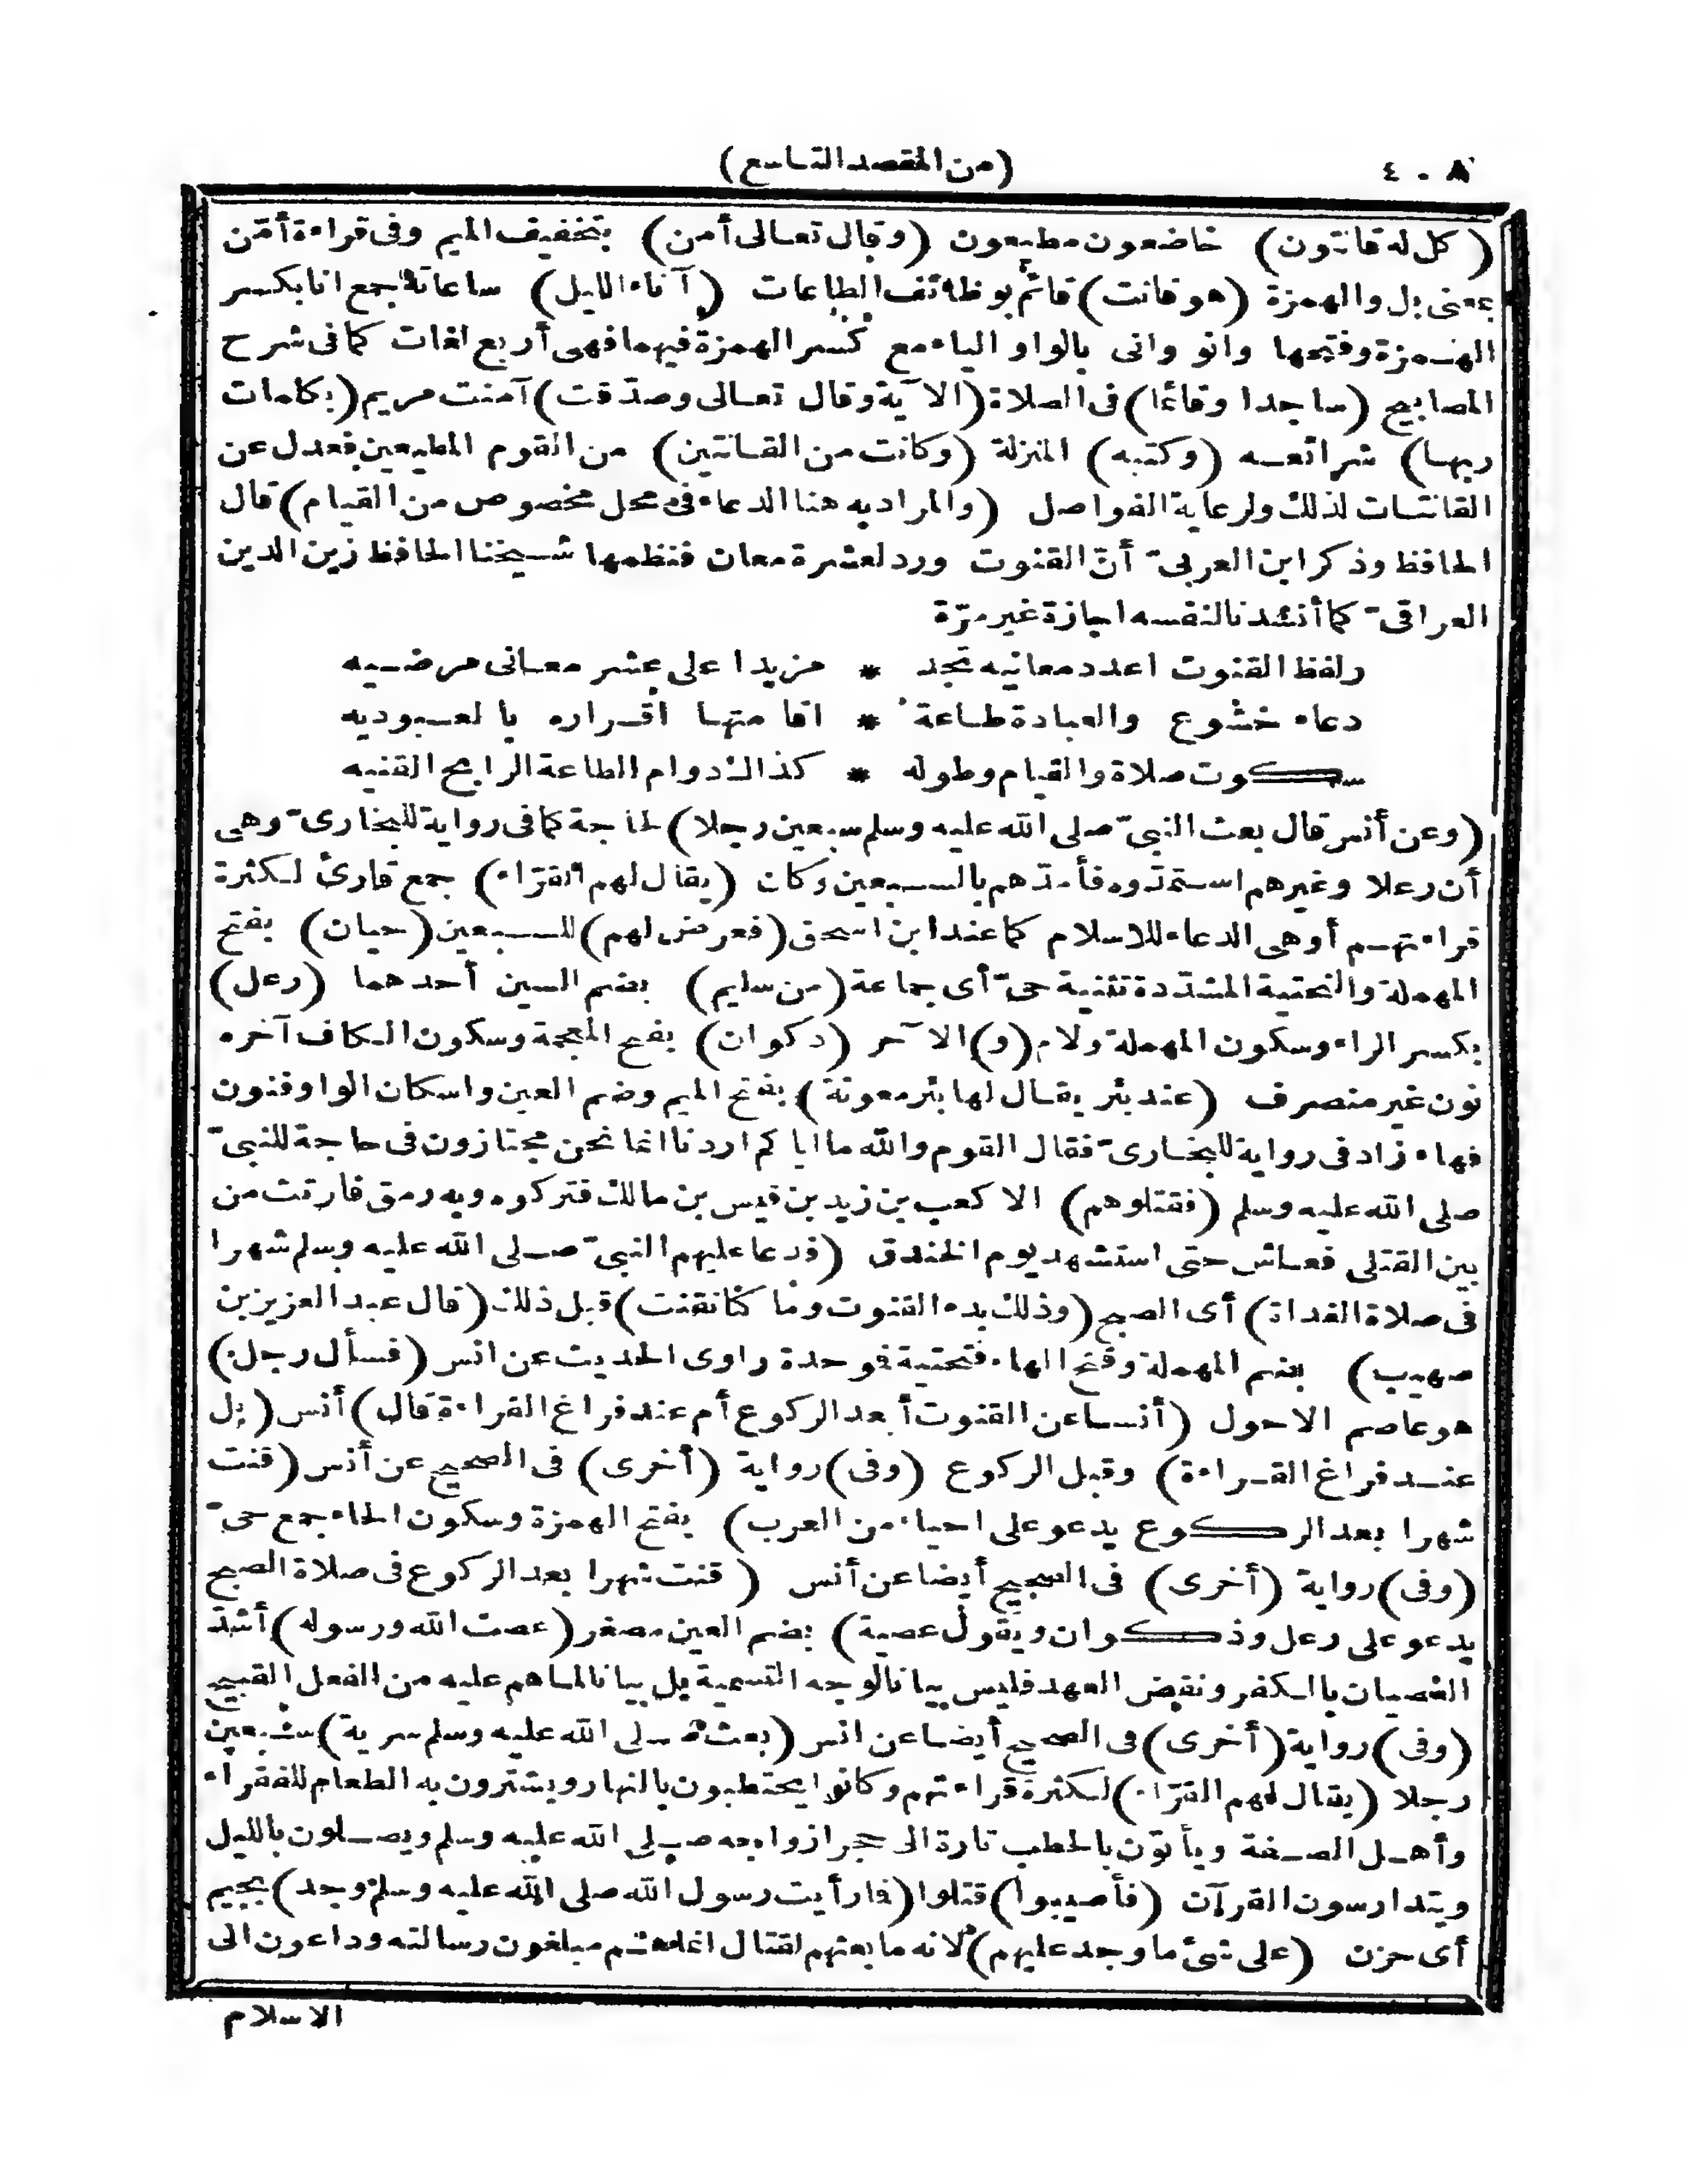 ٤٠٨
(من المقصد التاسع)
(كل له قانتون) خاضعون مطيعون (وقال تعالى أمن) بتخفيف الميم وفى قراءة أمّن
بمعنى بل والهمزة (هو قانت) قائم بوظائف الطاعات (آناء الليل) ساعاته جمع انا بكسر
الهمزة وفتحها وانو وانى بالواو والياء مع كسر الهمزة فيهما فهى أربع لغات كما فى شرح
المصابيح (ساجدا وقائما) فى الصلاة (الآية وقال تعالى وصدّقت) آمنت مريم (بكلمات
ربها) شرائعه (وكتبه) المنزلة (وكانت من القانتين) من القوم المطيعين فعدل عن
القانتات لذلك ولرعاية الفواصل (والمراد به هنا الدعاء فى محل مخصوص من القيام) قال
الحافظ وذكر ابن العربىّ أنّ القنوت ورد لعشرة معان فنظمها شيخنا الحافظ زين الدين
العراقىّ كما أنشدنا لنفسه اجازة غير مرّة
ولفظ القنوت اعدد معانيه تجد * مزيدا على عشر معانى مرضيه
دعاء خشوع والعبادة طاعة * اقامتها اقراره بالعبوديه
سكوت صلاة والقيام وطوله * كذاك دوام الطاعة الرابح القنيه
(وعن أنس قال بعث النبىّ صلى الله عليه وسلم سبعين رجلا) لحاجة كما فى رواية للبخارىّ وهى
أن رعلا وغيرهم استمدّوه فأمدّهم بالسبعين وكان (يقال لهم القرّاء) جمع قارئ لكثرة
قراءتهم أو هى الدعاء للاسلام كما عند ابن اسحق (فعرض لهم) للسبعين (حيان) بفتح
المهملة والتحتية المشدّدة تثنية حىّ أى جماعة (من سليم) بضم السين أحدهما (رعل)
بكسر الراء وسكون المهملة ولام (و) الآخر (ذكوان) بفتح المعجمة وسكون الكاف آخره
نون غير منصرف (عند بئر يقال لها بئر معونة) بفتح الميم وضم العين واسكان الواو فنون
فهاء زاد فى رواية للبخارىّ فقال القوم والله ما ايا كم اردنا انما نحن مجتازون فى حاجة للنبىّ
صلى الله عليه وسلم (فقتلوهم) الا كعب بن زيد بن قيس بن مالك فتركوه وبه رمق فارتث من
بين القتلى فعاش حتى استشهد يوم الخندق (فدعا عليهم النبىّ صلى الله عليه وسلم شهرا
فى صلاة الغداة) أى الصبح (وذلك بدء القنوت وما كنّا نقنت) قبل ذلك (قال عبد العزيز بن
صهيب) بضم المهملة وفتح الهاء فتحتية فموحدة راوى الحديث عن انس (فسأل رجل)
هو عاصم الاحول (أنسا عن القنوت أبعد الركوع أم عند فراغ القراءة قال) أنس (بل
عند فراغ القراءة) وقبل الركوع (وفى) رواية (أخرى) فى الصحيح عن أنس (قنت
شهرا بعد الركوع يدعو على احياء من العرب) بفتح الهمزة وسكون الحاء جمع حىّ
(وفى) رواية (أخرى) فى الصحيح أيضا عن أنس (قنت شهرا بعد الركوع فى صلاة الصبح
يدعو على رعل وذكوان ويقول عصية) بضم العين مصغر (عصت الله ورسوله) أشدّ
العصيان بالكفر ونقض العهد فليس بيانا لوجه التسمية بل بيانا لما هم عليه من الفعل القبيح
(وفى) رواية (أخرى) فى الصحيح أيضا عن انس (بعث صلى الله عليه وسلم سرية) سبعين
رجلا (يقال لهم القرّاء) لكثرة قراءتهم وكانوا يحتطبون بالنهار ويشترون به الطعام للفقراء
وأهل الصفة ويأتون بالحطب تارة الى حجر ازواجه صلى الله عليه وسلم ويصلون بالليل
ويتدارسون القرآن (فأصيبوا) قتلوا (فما رأيت رسول الله صلى الله عليه وسلم وجد) بجيم
أى حزن (على شئ ما وجد عليهم) لانه ما بعثهم لقتال انما هم مبلغون رسالته وداعون الى
الاسلام